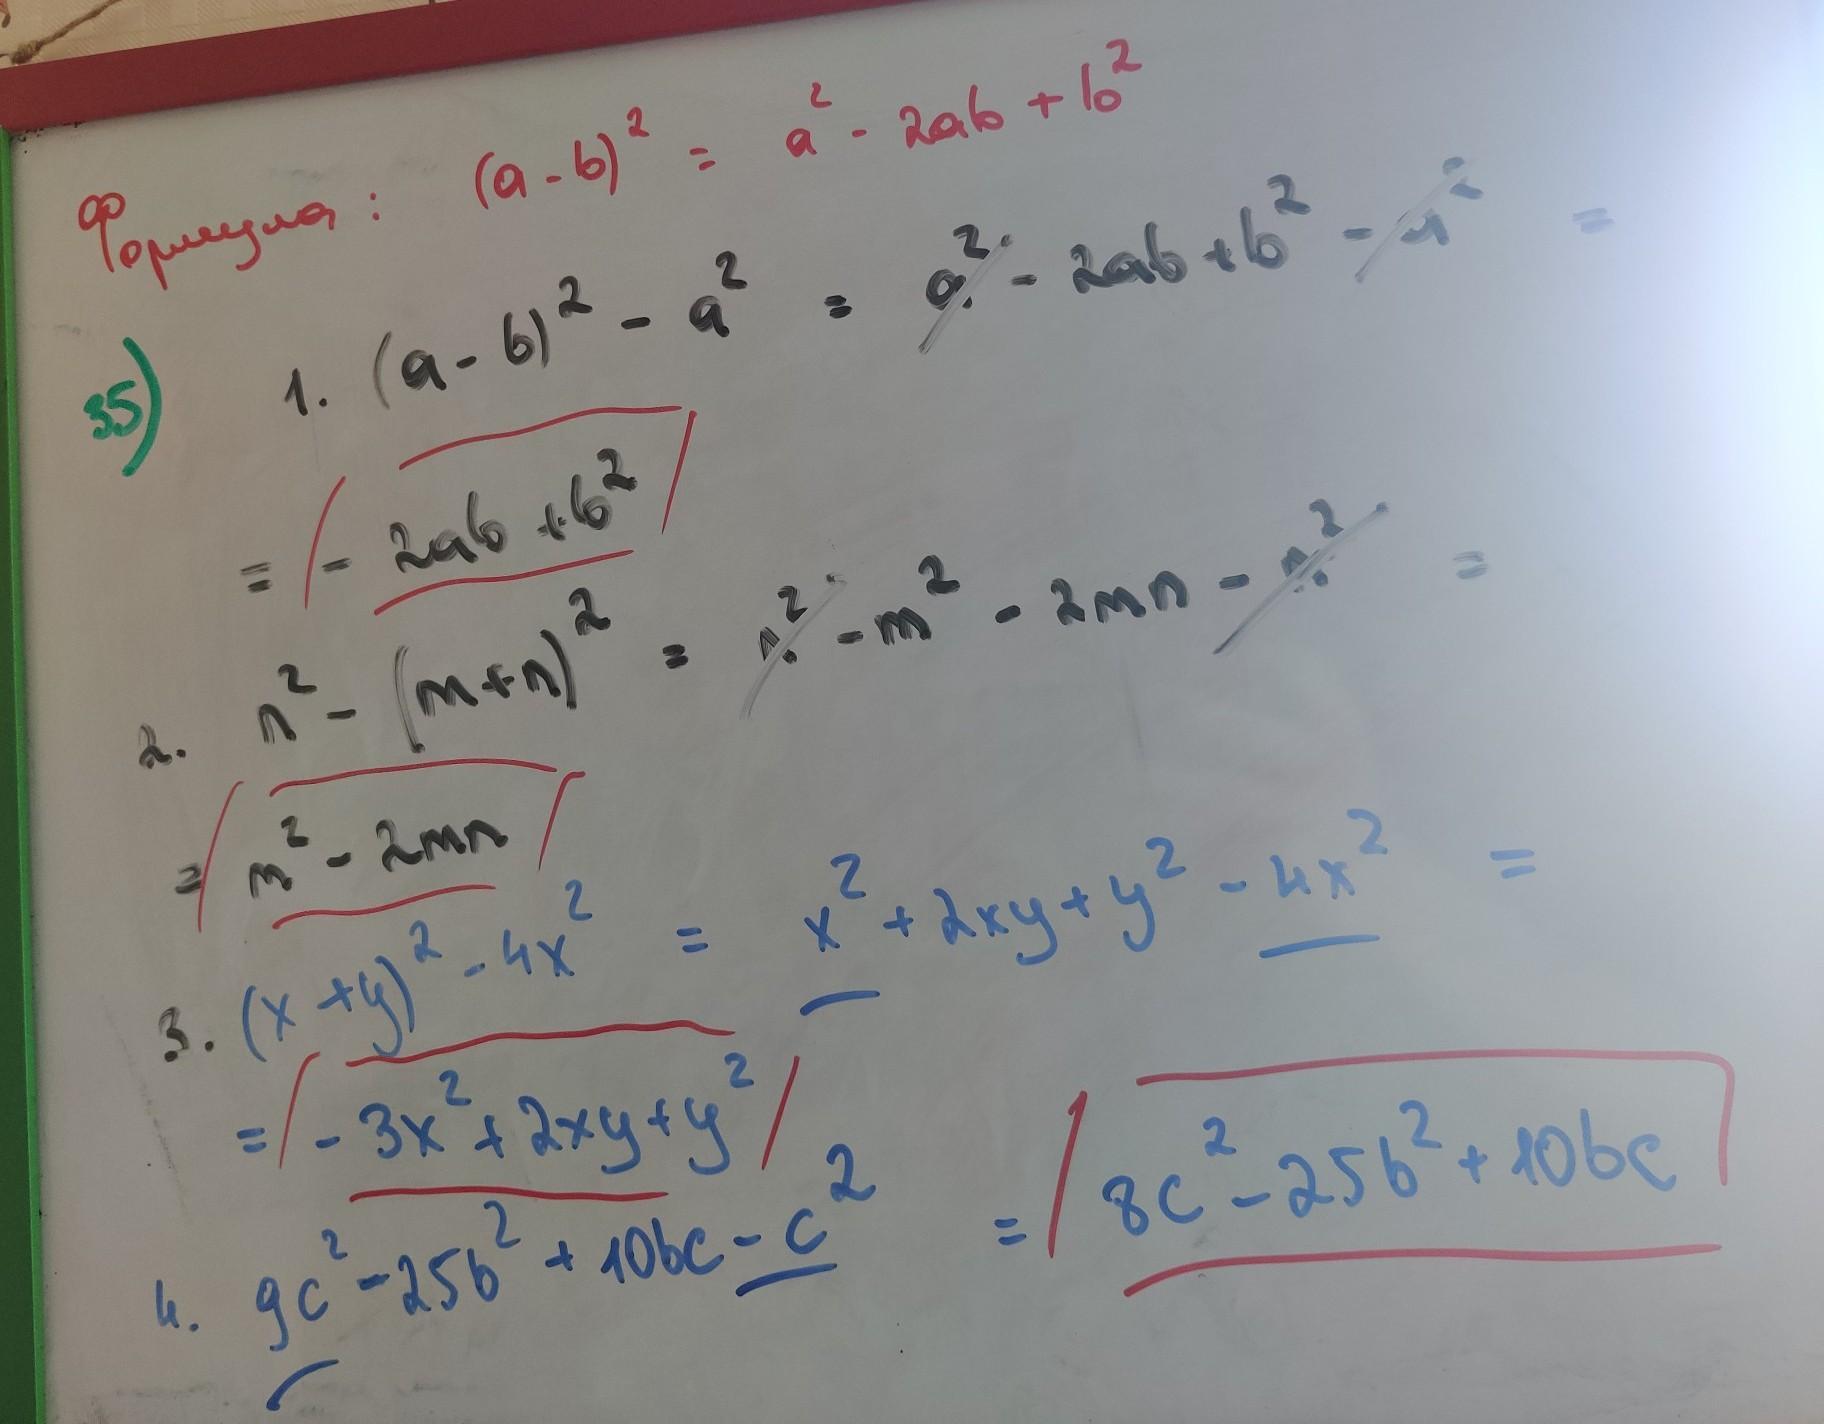 Формула: (a-b)² = a² - 2ab + b²
35) 1. (a-b)² - a² = a² - 2ab + b² - a² =
= - 2ab + b²
2. n² - (m+n)² = n² - m² - 2mn - n² =
= m² - 2mn
3. (x+y)² - 4x² = x² + 2xy + y² - 4x² =
= - 3x² + 2xy + y²
4. 9c² - 25b² + 10bc - c² = 8c² - 25b² + 10bc